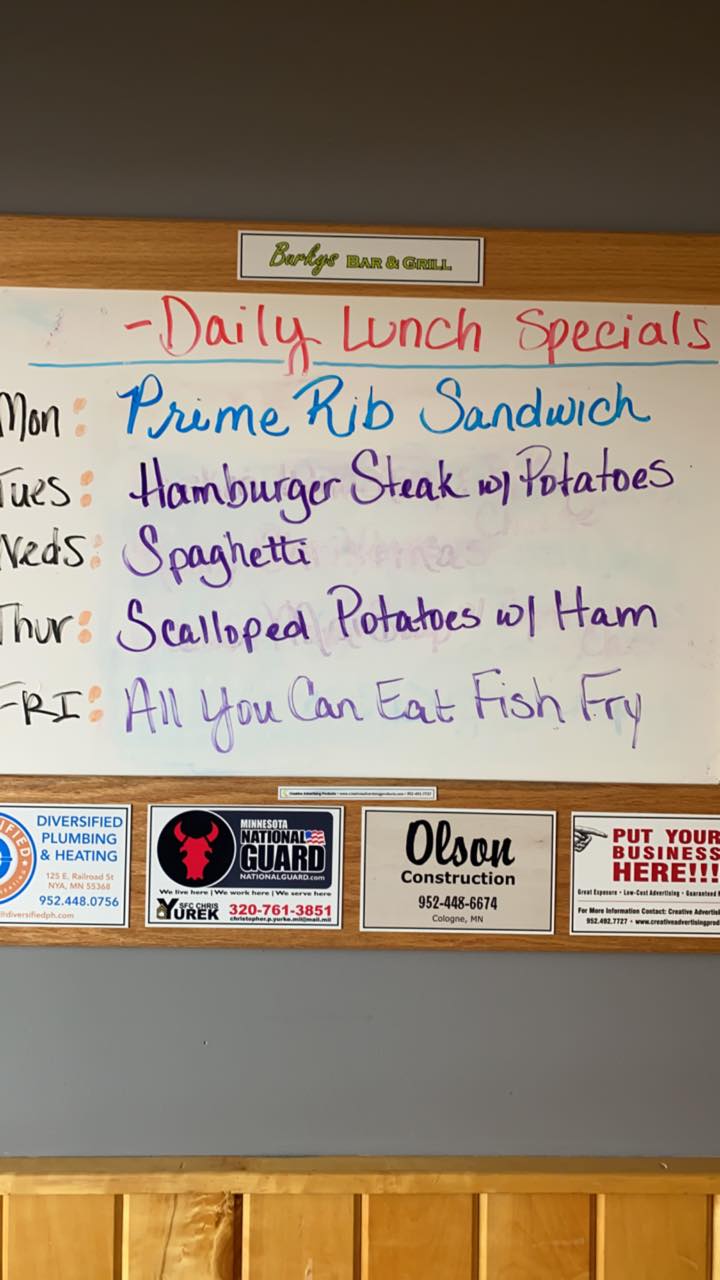 Burkys BAR & GRILL
-Daily Lunch Specials
Mon: Prime Rib Sandwich
Tues: Hamburger Steak w/ Potatoes
Weds: Spaghetti
Thur: Scalloped Potatoes w/ Ham
FRI: All You Can Eat Fish Fry
DIVERSIFIED
PLUMBING
& HEATING
125 E. Railroad St
NYA, MN 55368
952.448.0756
diversifiedph.com
MINNESOTA
NATIONAL
GUARD
NATIONALGUARD.com
We live here | We work here | We serve here
SFC CHRIS
YUREK
320-761-3851
Olson
Construction
952-448-6674
Cologne, MN
PUT YOUR
BUSINESS
HERE!!!
Great Exposure • Low-Cost Advertising • Guaranteed
For More Information Contact: Creative
952.492.7727 •